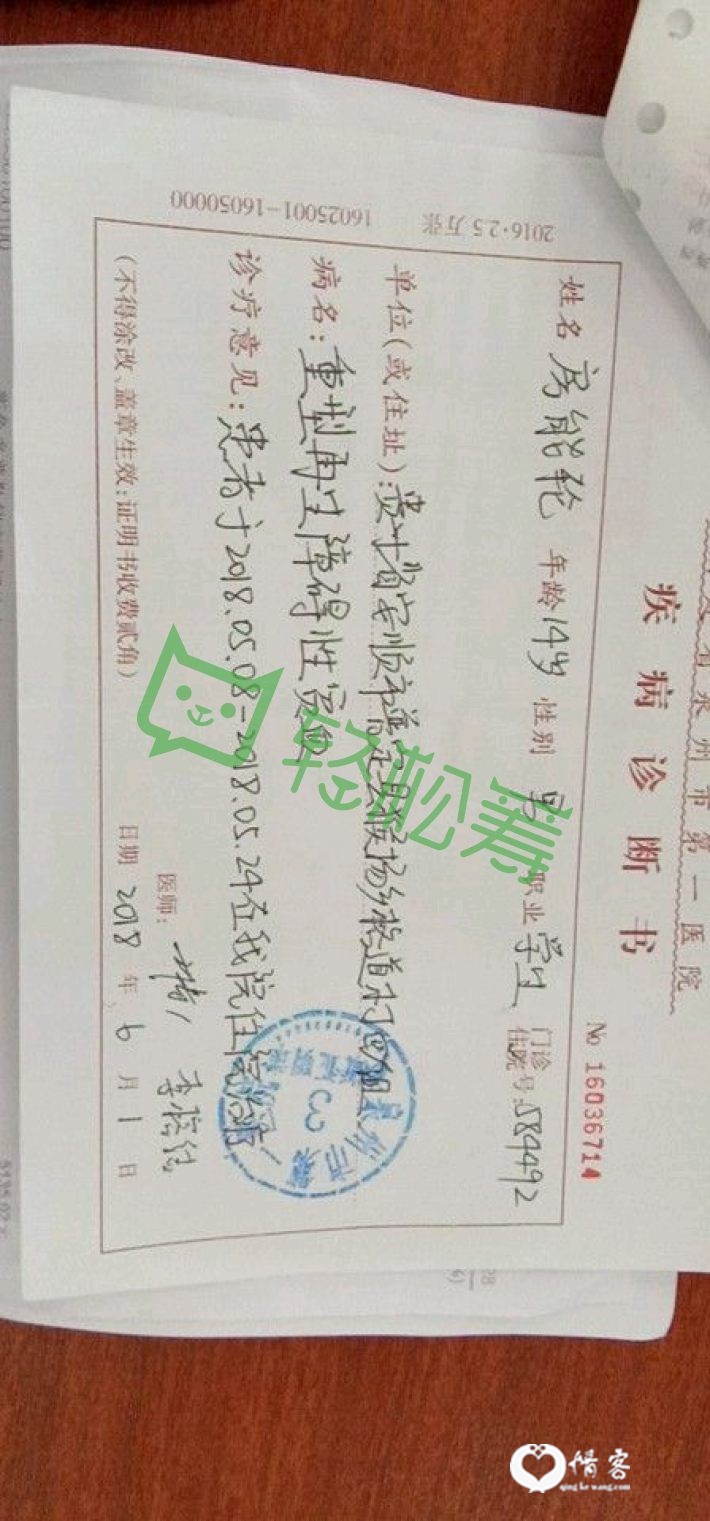 省泉州市第一医院
疾病诊断书
No 16036714
姓名 房能轮 年龄 14岁 性别 男 职业 学生 门诊住院号:589492
单位(或住址):贵州省安顺市普定县猴场乡 道村四组
病名:重型再生障碍性贫血
诊疗意见:患者于2018.05.08-2018.05.24在我院住院治疗
医师: 李
日期 2018 年 6 月 1 日
(不得涂改、盖章生效;证明书收费贰角)
2016·2.5万张 16025001-16050000
轻松筹
情客
qing ke wang.com